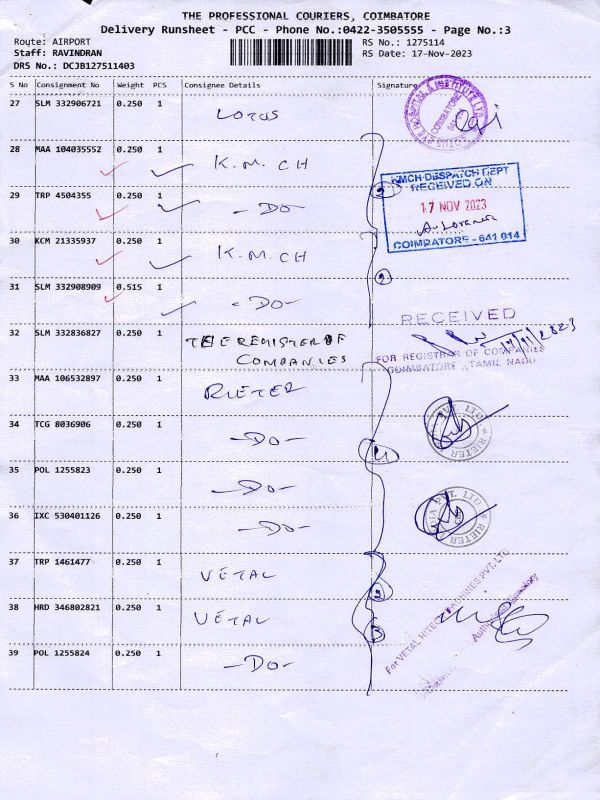 THE PROFESSIONAL COURIERS, COIMBATORE
Delivery Runsheet - PCC - Phone No.:0422-3505555 - Page No.:3
Route: AIRPORT
Staff: RAVINDRAN
DRS No.: DCJB127511403
RS No.: 1275114
RS Date: 17-Nov-2023
S No Consignment No Weight PCS Consignee Details Signature
27 SLM 332906721 0.250 1 LOTUS
28 MAA 104035552 0.250 1 K.M.CH
29 TRP 4504355 0.250 1 -DO-
30 KCM 21335937 0.250 1 K.M.CH
31 SLM 332908909 0.515 1 -DO-
32 SLM 332836827 0.250 1 THE REGISTER OF
COMPANIES
33 MAA 106532897 0.250 1 RIETER
34 TCG 8036906 0.250 1 -DO-
35 POL 1255823 0.250 1 -DO-
36 IXC 530401126 0.250 1 -DO-
37 TRP 1461477 0.250 1 VETAL
38 HRD 346802821 0.250 1 VETAL
39 POL 1255824 0.250 1 -DO-
LOTUS EYE HOSPITAL & INSTITUTE LTD
COIMBATORE
KMCH-DESPATCH DEPT
RECEIVED ON
17 NOV 2023
COIMBATORE - 641 014
2
2
RECEIVED
17/11/2023
FOR REGISTRAR OF COMPANIES
COIMBATORE, TAMIL NADU
4
PVT. LTD
RIETER
PVT. LTD
RIETER
For VETAL
MACHINES PVT. LTD
Authorised Signatory